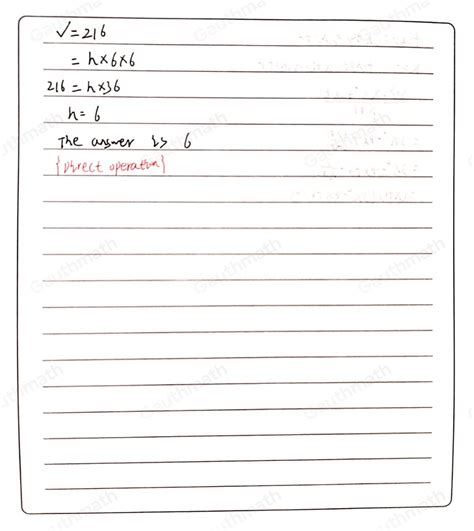 V=216
= h×6×6
216 = h×36
h= 6
The answer is 6
{Direct operation}